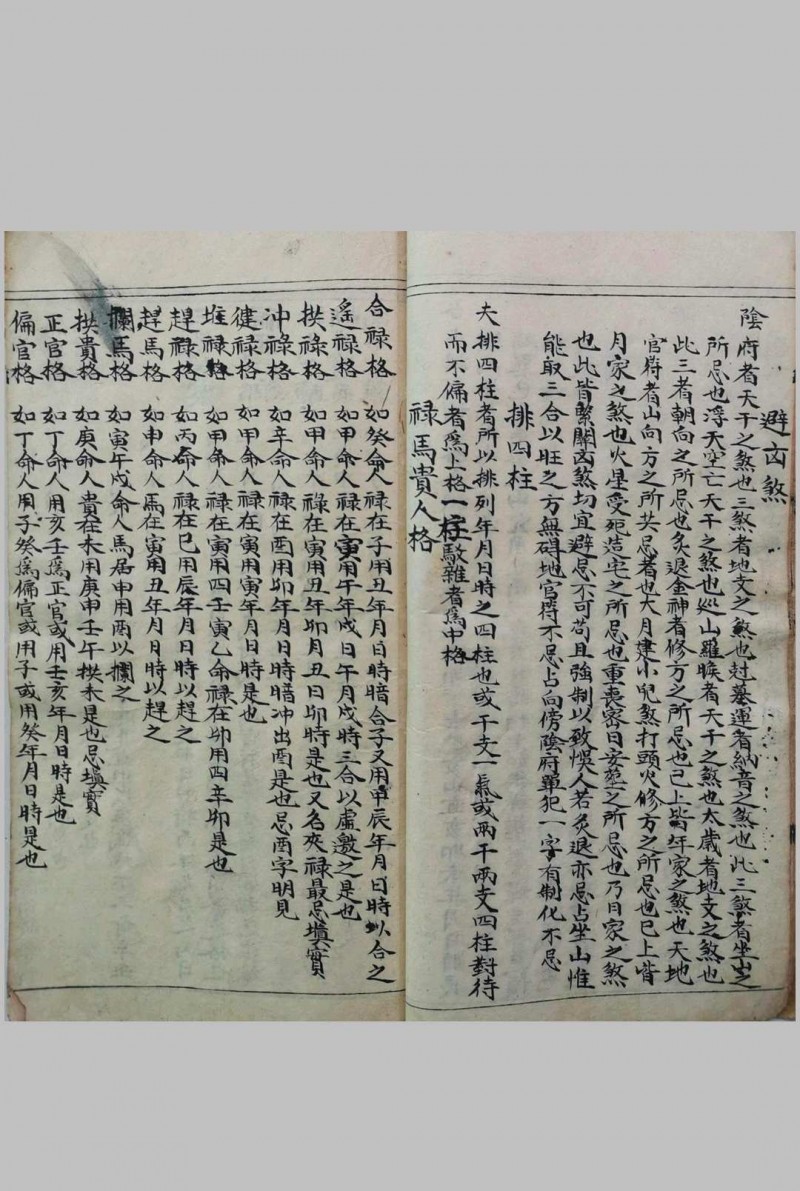 避凶煞
陰府者天干之煞也三煞者地支之煞也赶墓運者納音之煞也此三煞者坐山之
所忌也浮天空亡天干之煞也巡山羅睺者天干之煞也太歲者地支之煞也
此三者朝向之所忌也炙退金神者修方之所忌也已上皆年家之煞也天地
官符者山向方之所共忌者也大月建小兒煞打頭火修方之所忌也已上皆
月家之煞也火星受死造宅之所忌也重喪密日安塟之所忌也乃日家之煞
也此皆繫關凶煞切宜避忌不可苟且強制以致悞人若炙退亦忌占坐山惟
能取三合以旺之方無碍地官符不忌占向傍陰府單犯一字有制化不忌
排四柱
夫排四柱者所以排列年月日時之四柱也或干支一氣或兩干兩支四柱對待
而不偏者為上格一柱駁雜者為中格
祿馬貴人格
合祿格 如癸命人祿在子用丑年月日時暗合子又用甲辰年月日時以合之
遙祿格 如甲命人祿在寅用午年戌日午月戌時三合以虛邀之是也
拱祿格 如甲命人祿在寅用丑年卯月丑日卯時是也又名夾祿最忌填實
冲祿格 如辛命人祿在酉用卯年月日時暗冲出酉是也忌酉字明見
健祿格 如甲命人祿在寅用寅年月日時是也
堆祿格 如甲命人祿在寅用四壬寅乙命祿在卯用四辛卯是也
趕祿格 如丙命人祿在巳用辰年月日時以趕之
趕馬格 如申命人馬在寅用丑年月日時以趕之
攔馬格 如寅午戌命人馬居申用酉以攔之
拱貴格 如庚命人貴在未用庚申壬午拱未是也忌填實
正官格 如丁命人用亥壬為正官或用壬亥年月日時是也
偏官格 如丁命人用子癸為偏官或用子或用癸年月日時是也